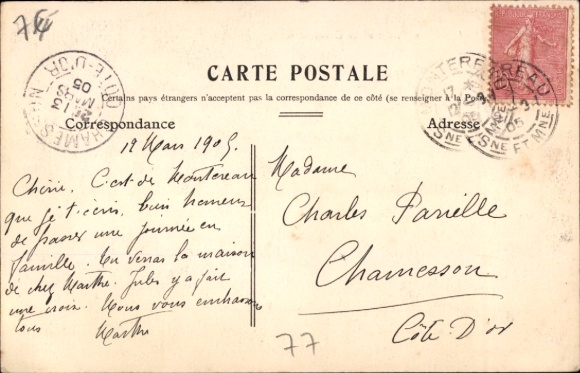 77
CARTE POSTALE
Certains pays étrangers n'acceptent pas la correspondance de ce côté (se renseigner à la Poste)
Correspondance
Adresse
CHAMESSON
CÔTE-D'OR
13
MARS
05
MONTEREAU
SNE ET MNE
12 Mars 1905
Chérie. C'est de Montereau
que je t'écris, bien heureux
de passer une journée en
famille. Tu verras la maison
de chez Marthe. Jules y a fait
une croix. Nous vous embrassons
tous Marthe
Madame
Charles Parielle
Chamesson
Côte D'or
77